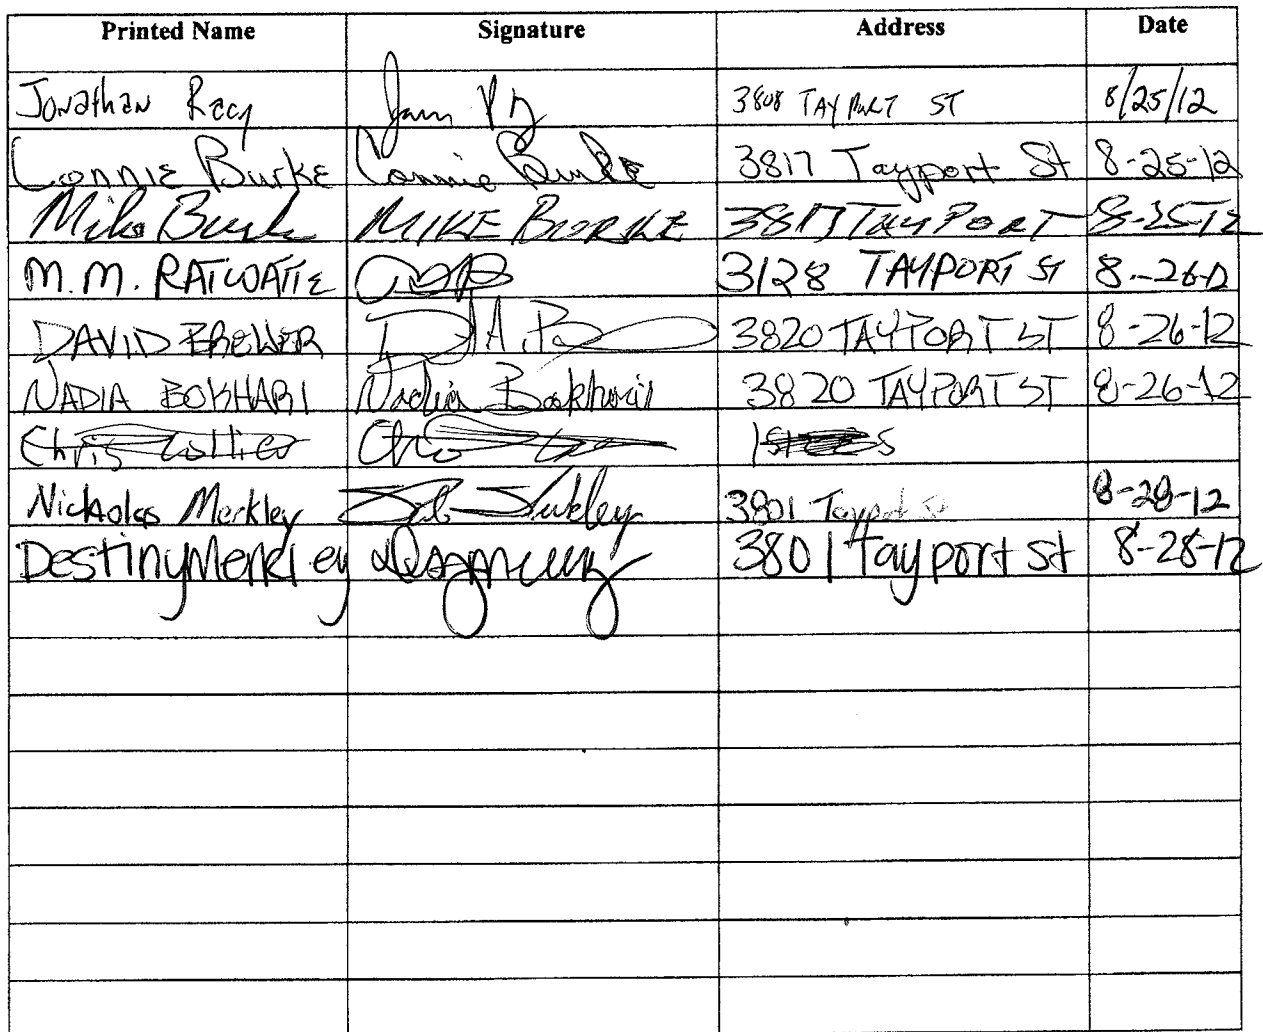 Printed Name Signature Address Date
Jonathan Racy 3808 TAYPORT ST 8/25/12
Connie Burke Connie Burke 3817 Tayport St 8-25-12
Mike Burke MIKE BURKE 3817 TAYPORT 8-25-12
M.M. RATWATTE 3128 TAYPORT ST 8-26-12
DAVID BREWER 3820 TAYPORT ST 8-26-12
NADIA BOKHARI Nadia Bokhari 3820 TAYPORT ST 8-26-12
Chris
Nickolas Merkley Merkley 3801 Tayport St 8-28-12
Destiny Merkley 3801 Tayport St 8-28-12